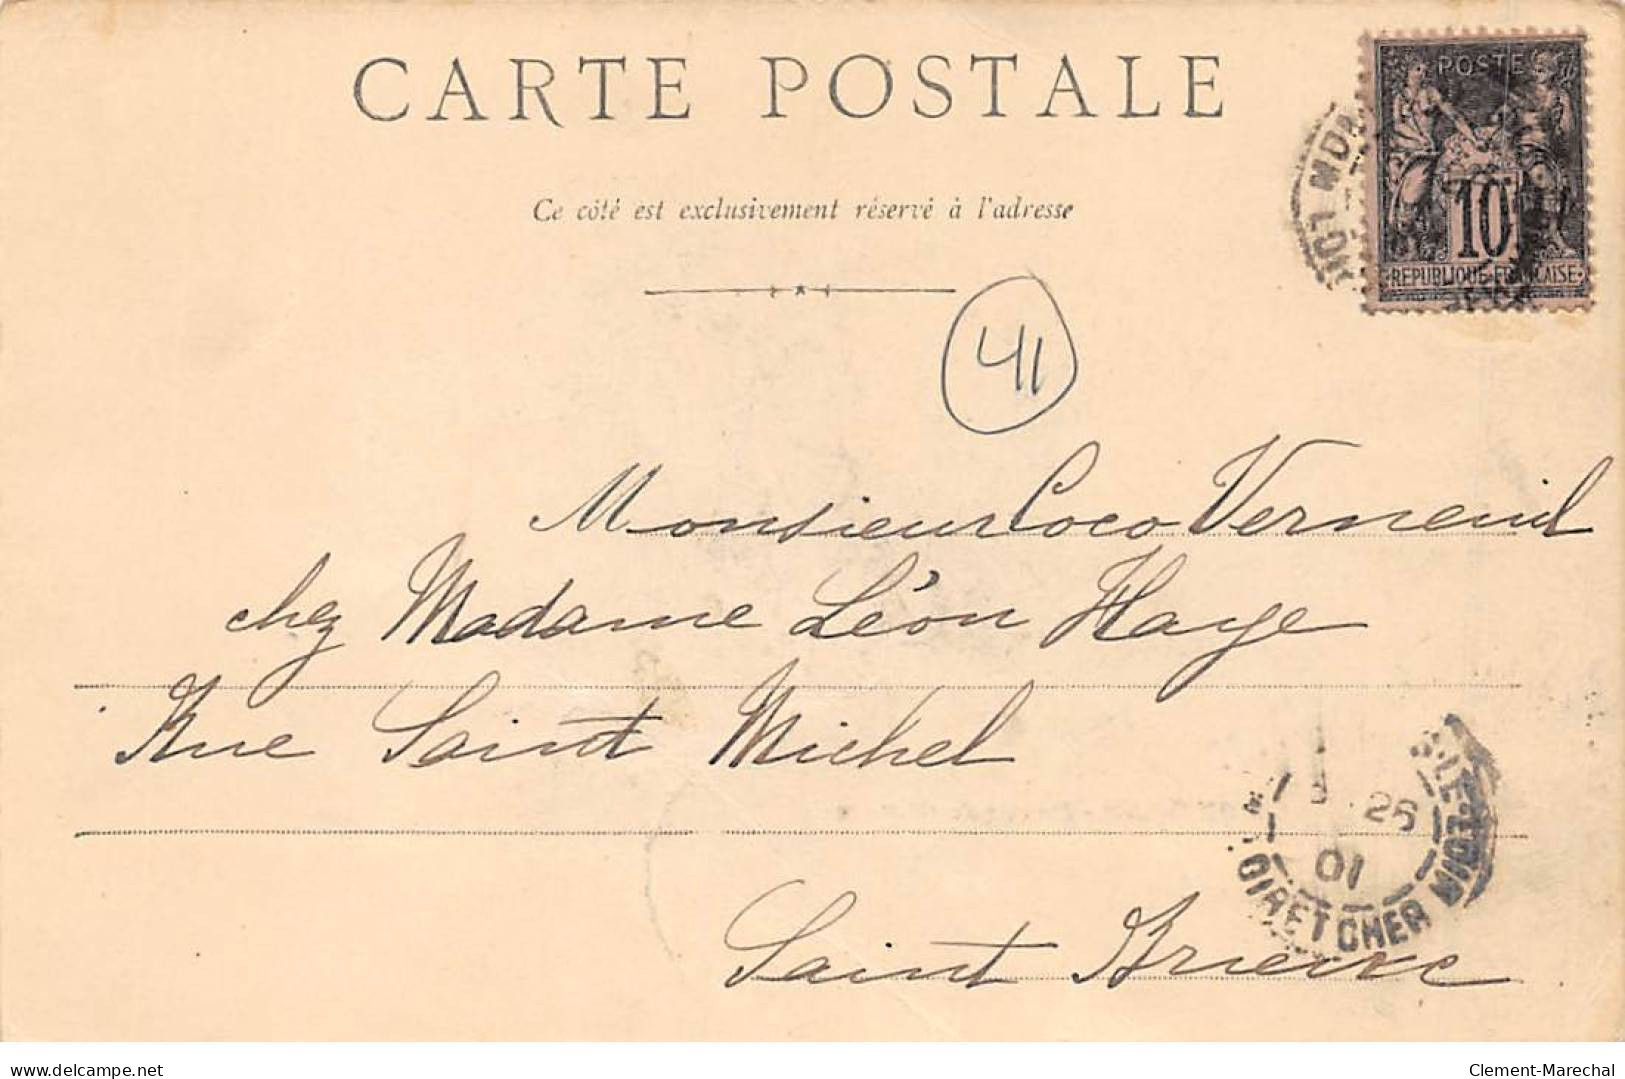 CARTE POSTALE
Ce côté est exclusivement réservé à l'adresse
POSTE
10
REPUBLIQUE FRANCAISE
41
Monsieur Coco Verneuil
chez Madame Léon Haye
Rue Saint Michel
Saint Brieuc
26
01
OIRETCHER
delcampe.net
Clement-Marechal